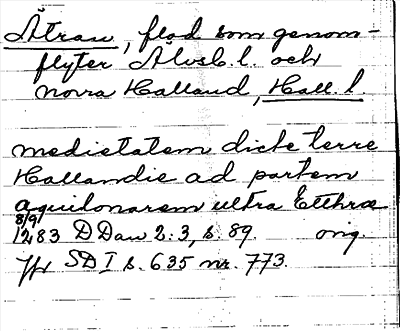 Ätran, flod som genom-
flyter Älvsb. l. och
norra Halland, Hall. l.
medietatem dicte terre
Hallandie ad partem
aquilonarem ultra Etthræ
8/9 1283 D Dan 2:3, s. 89. orig.
Jfr SD I s. 635 nr. 773.